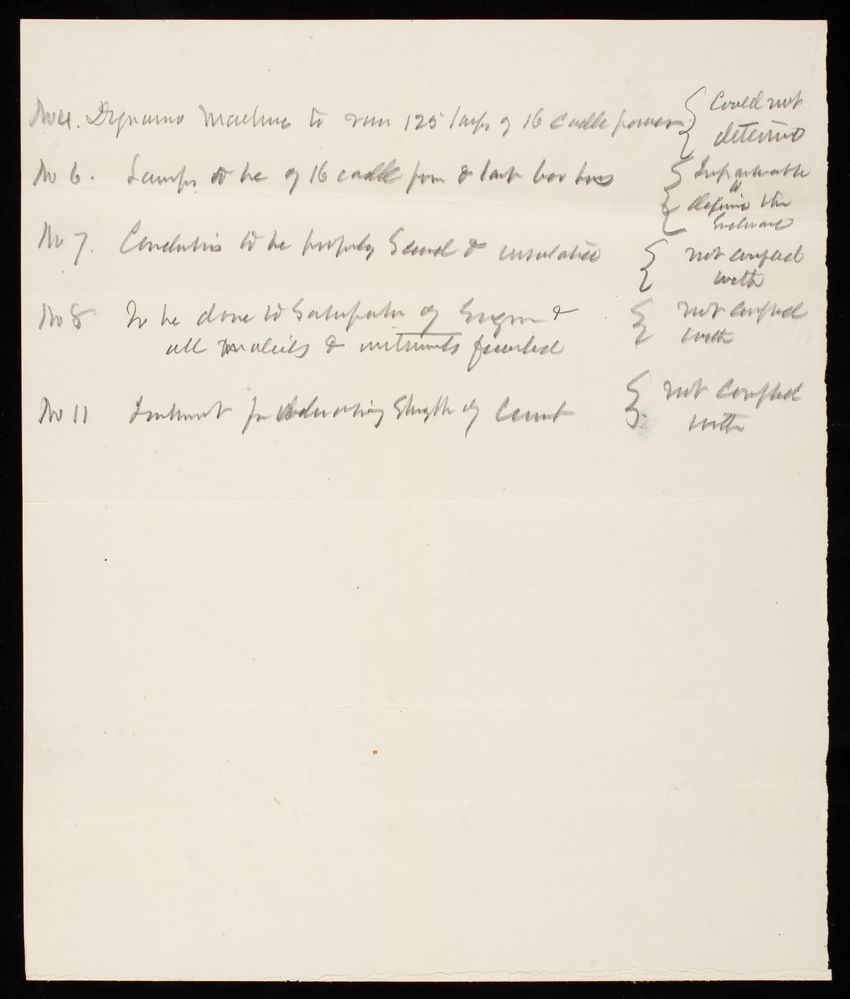 No 4. Dynamo Machine to run 125 lamps of 16 Candle power { Could not
determine
No 6. Lamps to be of 16 candle power & last 600 hours { Impracticable
to
define this
No 7. Conductors to be properly & insulated { not complied
with
No 8 To be done to Satisfaction of Engineer & { not complied
all materials & instruments furnished with
No 11 Instrument for Strength of Current { not complied
with